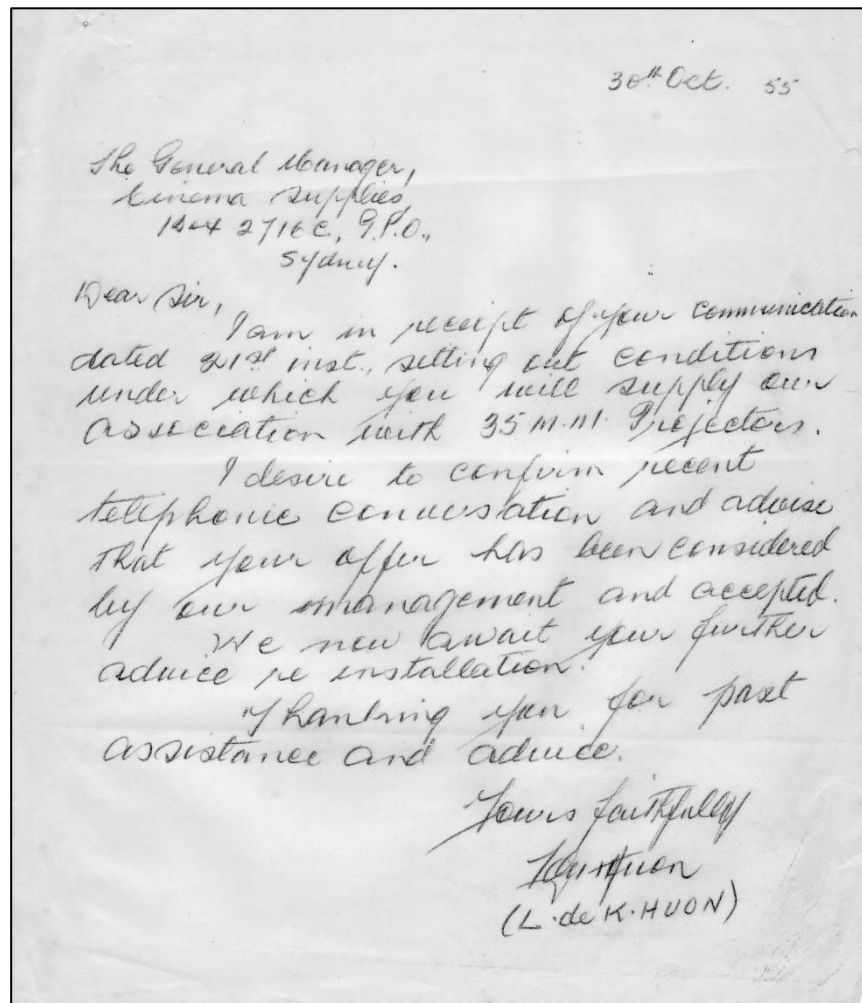 30th Oct. 55
The General Manager,
Cinema Supplies,
2716 C, G.P.O.,
Sydney.
Dear Sir,
I am in receipt of your communication
dated 21st inst., setting out conditions
under which you will supply our
association with 35 m.m. Projectors.
I desire to confirm recent
telephonic conversation and advise
that your offer has been considered
by our management and accepted.
We now await your further
advice re installation.
Thanking you for past
assistance and advice.
Yours faithfully
(L. de K. HUON)